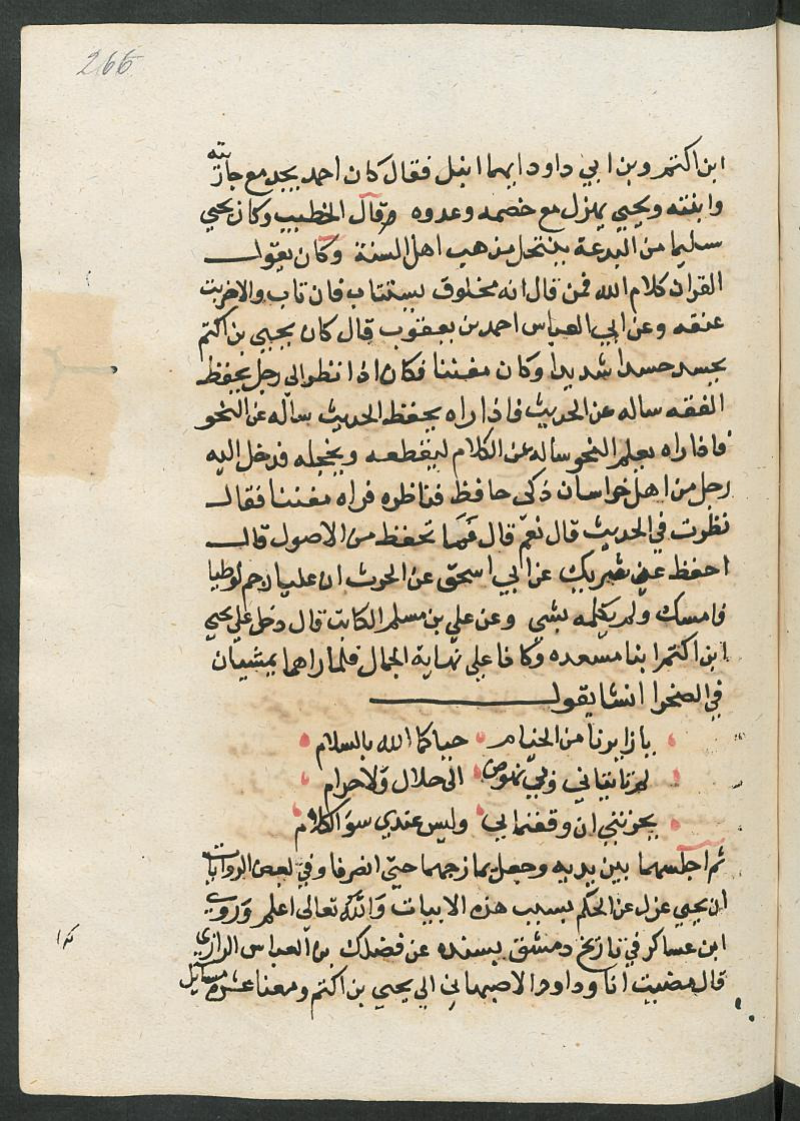 266
ابن اكتم وبن ابي داود ايهما انبل فقال كان احمد يجد مع جاريته
وابنته ويحيى يهزل مع خصمه وعدوه وقال الخطيب وكان يحيى
سليما من البدعة ينتحل مذهب اهل السنة وكان يقول
القران كلام الله فمن قال انه مخلوق يستتاب فان تاب والا ضربت
عنقه وعن ابي العباس احمد بن يعقوب قال كان يحيى بن اكتم
يحسد حسدا شديدا وكان مفننا فكان اذا نظر الي رجل يحفظ
الفقه ساله عن الحديث فاذا راه يحفظ الحديث ساله عن النحو
فاذا راه يعلم النحو ساله عن الكلام ليقطعه ويخجله فدخل اليه
رجل من اهل خراسان ذكى حافظ فناظره فراه مفننا فقال
نظرت في الحديث قال نعم قال فما تحفظ من الاصول قال
احفظ عن شريك عن ابي اسحق عن الحرث ان عليا رجم لوطيا
فامسك ولم يكلمه بشي وعن علي بن مسلم الكاتب قال دخل علي يحيى
ابن اكتم ابنا مسعده وكانا على نهاية الجمال فلما راهما يمشيان
في الصحرا انشا يقول
يا زايرينا من الخيام حياكما الله بالسلام
لم تاتياني وبي نهوض الى حلال ولا حرام
يحزنني ان وقفتما بي وليس عندي سوى الكلام
ثم اجلسهما بين يديه وجعل يمازحهما حتى انصرفا وفي بعض الروايات
ان يحيى عزل عن الحكم بسبب هذه الابيات والله تعالى اعلم وروى
ابن عساكر في تاريخ دمشق بسنده عن فضلك بن العباس الرازي
قال مضيت انا وداود الاصبهاني الي يحيى بن اكتم ومعنا عشرة مسائل